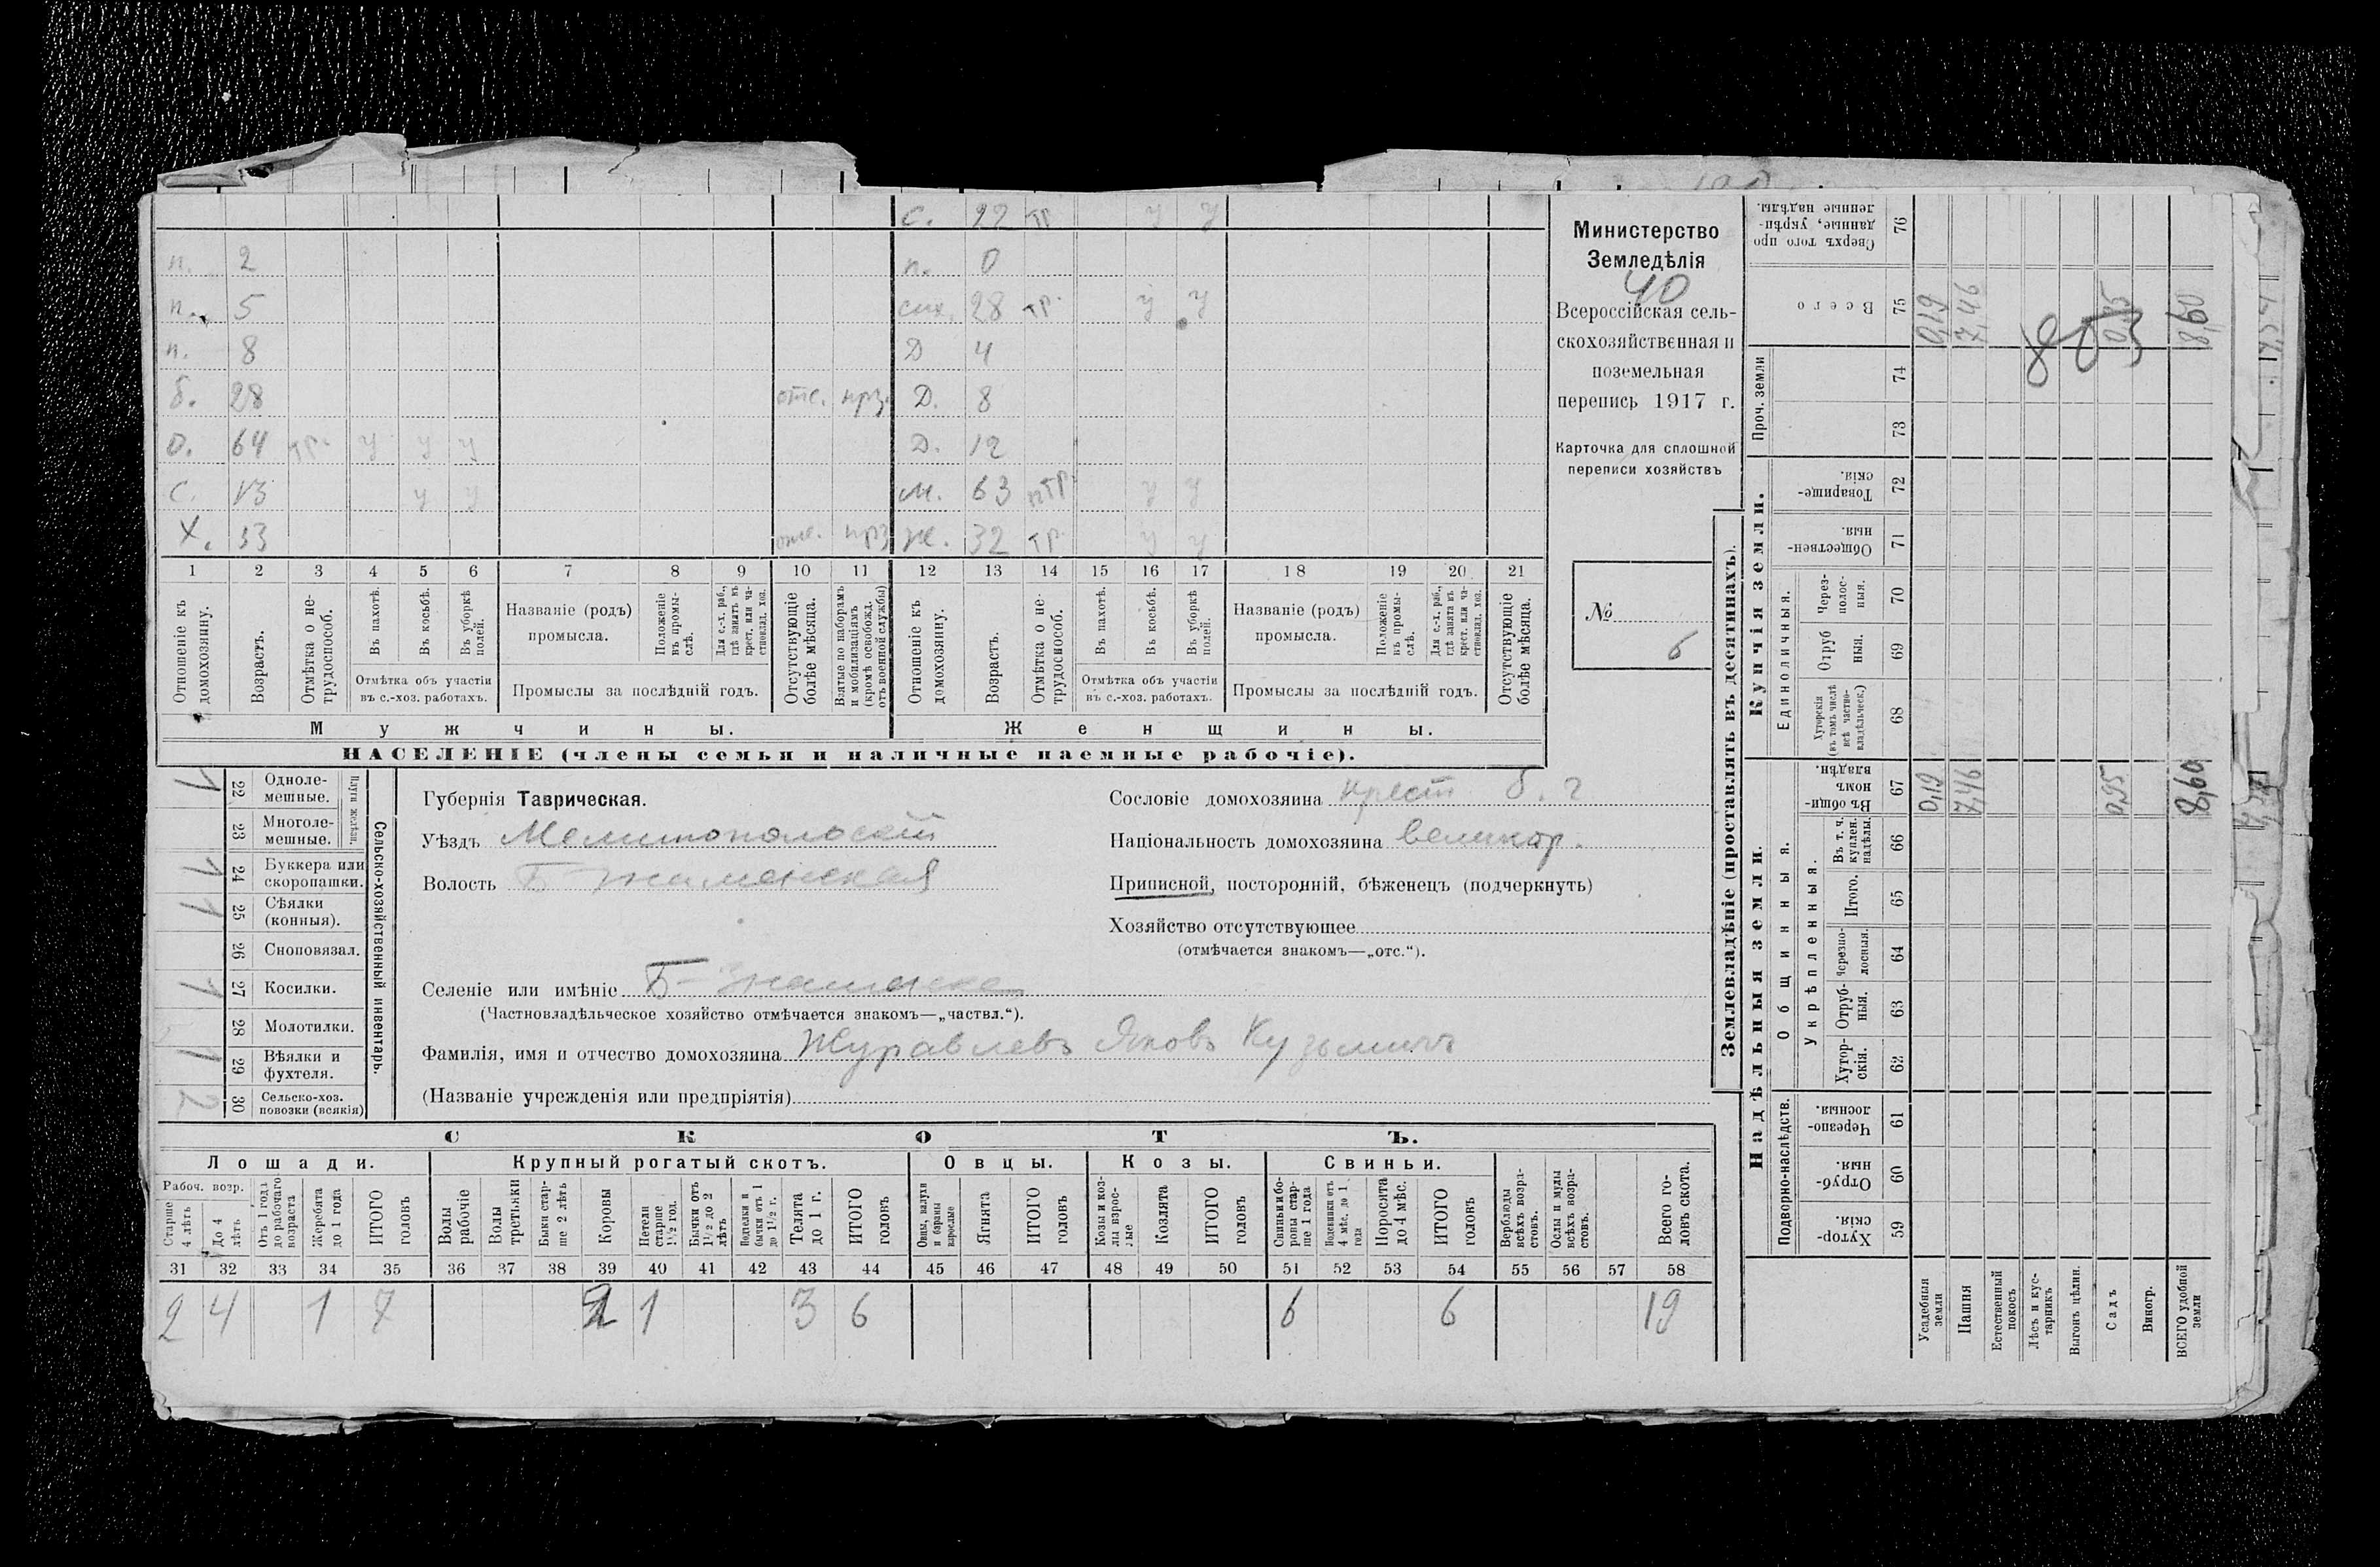 с. 22 тр у у
п. 2 п. 0
п. 5 сн. 28 тр. у у
п. 8 Д 4
б. 28 отс. прз. Д. 8
о. 64 тр. у у у Д. 12
с. 13 у у м. 63 птр. у у
Х. 33 отс. прз ж. 32 тр. у у
1 2 3 4 5 6 7 8 9 10 11 12 13 14 15 16 17 18 19 20 21
Отношеніе къ домохозяину.
Возрастъ.
Отмѣтка о не-трудоспособ.
Въ пахотѣ.
Въ косьбѣ.
Въ уборкѣ полей.
Отмѣтка объ участіи въ с.-хоз. работахъ.
Названіе (родъ) промысла.
Положеніе въ промы-слѣ.
Для с.-х. раб., гдѣ занятъ въ крест. или ча-стновлад. хоз.
Промыслы за послѣдній годъ.
Отсутствующіе болѣе мѣсяца.
Взятые по наборамъ и мобилизаціямъ (кромѣ освобожд. отъ военной службы)
Отношеніе къ домохозяину.
Возрастъ.
Отмѣтка о не-трудоспособ.
Въ пахотѣ.
Въ косьбѣ.
Въ уборкѣ полей.
Отмѣтка объ участіи въ с.-хоз. работахъ.
Названіе (родъ) промысла.
Положеніе въ промы-слѣ.
Для с.-х. раб., гдѣ занята въ крест. или ча-стновлад. хоз.
Промыслы за послѣдній годъ.
Отсутствующіе болѣе мѣсяца.
Мужчины. Женщины.
НАСЕЛЕНІЕ (члены семьи и наличные наемные рабочіе).
Министерство
Земледѣлія
40
Всероссійская сель-
скохозяйственная и
поземельная
перепись 1917 г.
Карточка для сплошной
переписи хозяйствъ
№
6
1 22 Одноле-мешные.
23 Многоле-мешные.
Плуги желѣзн.
1 24 Буккера или скоропашки.
1 25 Сѣялки (конныя).
26 Сноповязал.
1 27 Косилки.
28 Молотилки.
1 29 Вѣялки и фухтеля.
2 30 Сельско-хоз. повозки (всякія)
Сельско-хозяйственный инвентарь.
Губернія Таврическая.
Уѣздъ Мелитопольскій
Волость Б-Знаменская
Селеніе или имѣніе Б-Знаменка
(Частновладѣльческое хозяйство отмѣчается знакомъ—„частвл.“).
Фамилія, имя и отчество домохозяина Журавлевъ Яковъ Кузьмичъ
(Названіе учрежденія или предпріятія)
Сословіе домохозяина крест б. г
Національность домохозяина великор.
Приписной, посторонній, бѣженецъ (подчеркнуть)
Хозяйство отсутствующее
(отмѣчается знакомъ—„отс.“).
СКОТЪ.
Лошади. Крупный рогатый скотъ. Овцы. Козы. Свиньи.
Рабоч. возр.
Старше 4 лѣтъ
До 4 лѣтъ
Отъ 1 года до рабочаго возраста
Жеребята до 1 года
ИТОГО головъ
Волы рабочіе
Волы третьяки
Быки стар-ше 2 лѣтъ
Коровы
Нетели старше 1½ год.
Бычки отъ 1½ до 2 лѣтъ
Подтелки и бычки отъ 1 до 1½ г.
Телята до 1 г.
ИТОГО головъ
Овцы, валухи и бараны взрослые
Ягнята
ИТОГО головъ
Козы и коз-лы взрос-лые
Козлята
ИТОГО головъ
Свиньи и бо-ровы стар-ше 1 года
Подсвинки отъ 4 мѣс. до 1 года
Поросята до 4 мѣс.
ИТОГО головъ
Верблюды всѣхъ возра-стовъ.
Ослы и мулы всѣхъ возра-стовъ.
Всего го-ловъ скота.
31 32 33 34 35 36 37 38 39 40 41 42 43 44 45 46 47 48 49 50 51 52 53 54 55 56 57 58
2 4 1 7 2 1 3 6 6 6 19
Землевладѣніе (проставлять въ десятинахъ).
Купчія земли.
Надѣльныя земли.
Сверхъ того про-данные, укрѣп-ленные надѣлы. 76
Всего 75 0,19 7,46 0,95 8,60
Проч. земли 74 73
Товарище-скія. 72
Обществен-ныя. 71
Единоличныя.
Через-полос-ныя. 70
Отруб ныя. 69
Хуторскія (въ томъ числѣ всѣ частно-владѣльческ.) 68
Общинныя.
Въ общин-номъ владѣн. 67 0,19 7,46 0,95 8,60
Укрѣпленныя.
Въ т. ч. куплен. надѣлы. 66
Итого. 65
Черезпо-лосныя. 64
Отруб-ныя. 63
Хутор-скія. 62
Подворно-наслѣдств.
Черезпо-лосныя. 61
Отруб-ныя. 60
Хутор-скія. 59
Усадебныя земли
Пашня
Естественный покосъ
Лѣсъ и кус-тарникъ
Выгонъ цѣлин.
Садъ
Виногр.
ВСЕГО удобной земли